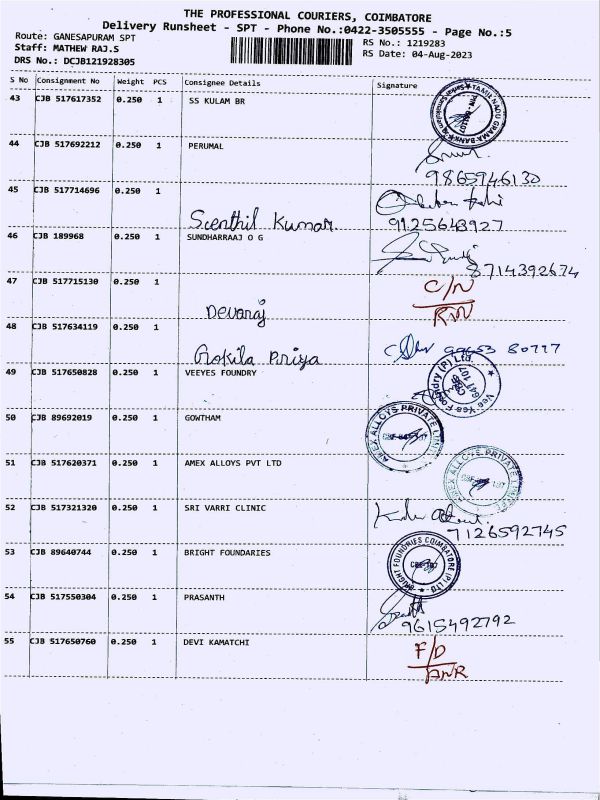 THE PROFESSIONAL COURIERS, COIMBATORE
Delivery Runsheet - SPT - Phone No.:0422-3505555 - Page No.:5
Route: GANESAPURAM SPT
Staff: MATHEW RAJ.S
DRS No.: DCJB121928305
RS No.: 1219283
RS Date: 04-Aug-2023
S No Consignment No Weight PCS Consignee Details Signature
43 CJB 517617352 0.250 1 SS KULAM BR
TAMIL NADU GRAMA BANK
44 CJB 517692212 0.250 1 PERUMAL
9865946130
45 CJB 517714696 0.250 1
Senthil Kumar.
9125643927
46 CJB 189968 0.250 1 SUNDHARRAAJ O G
8714392674
47 CJB 517715130 0.250 1
Devaraj
C/N
RW
48 CJB 517634119 0.250 1
Gokila Priya
99653 80777
49 CJB 517650828 0.250 1 VEEYES FOUNDRY
Vee Yes Foundry (P) Ltd.
CBE
641 107
50 CJB 89692019 0.250 1 GOWTHAM
AMEX ALLOYS PRIVATE LIMITED
51 CJB 517620371 0.250 1 AMEX ALLOYS PVT LTD
AMEX ALLOYS PRIVATE LIMITED
52 CJB 517321320 0.250 1 SRI VARRI CLINIC
7126592745
53 CJB 89640744 0.250 1 BRIGHT FOUNDARIES
BRIGHT FOUNDRIES COIMBATORE (P) LTD
54 CJB 517550304 0.250 1 PRASANTH
9615492792
55 CJB 517650760 0.250 1 DEVI KAMATCHI
F/D
ANR